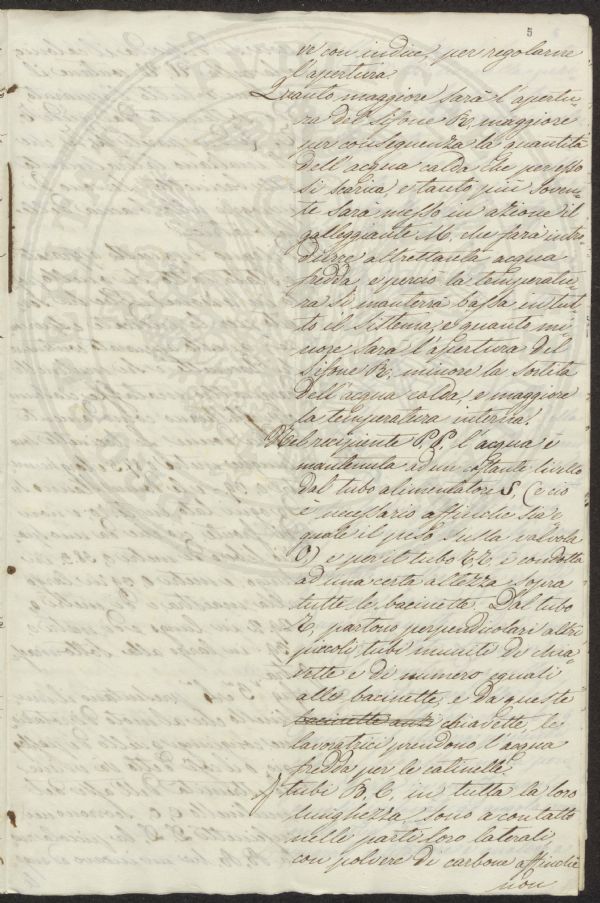 5
ve con indice, per regolarne
l'apertura
Quanto maggiore sarà l'apertu-
ra del Sifone R, maggiore
per conseguenza la quantità
dell'acqua calda che per esso
si scarica e tanto più soven-
te sarà messo in azione il
galleggiante M. che farà intro-
durre altrettanta acqua
fredda, e perciò la temperatu-
ra si manterrà bassa in tut-
to il Sistema; e quanto mi-
nore sarà l'apertura del
Sifone R, minore la sortita
dell'acqua calda, e maggiore
la temperatura interna.
Nel recipiente P.P. l'acqua è
mantenuta ad un costante livello
dal tubo alimentatore S, (e ciò
è necessario affinchè sia e-
guale il peso sulla valvola
O) e per il tubo è condotta
ad una certa altezza sopra
tutte le bacinette. Dal tubo
partono perpendicolari altri
piccoli tubi muniti di chia-
vette e di numero eguali
alle bacinette, e da queste
bacinette anzi chiavette, le
lavoratrici prendono l'acqua
fredda per le catinelle.
I tubi B, C, in tutta la loro
lunghezza sono a contatto
nelle parti loro laterali,
con polvere di carbone affinchè
non